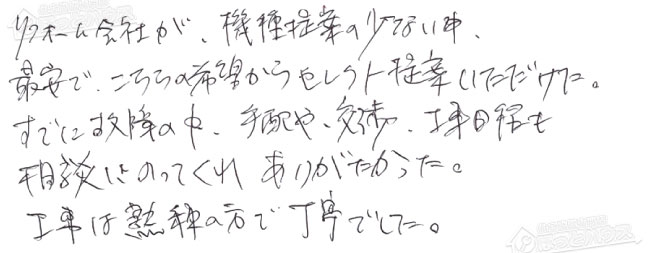 リフォーム会社が、機種提案の少ない中、
最安で、こちらの希望からセレクト提案いただけた。
すでに故障の中、手配や、交渉、工事日程も
相談にのってくれ ありがたかった。
工事は熟種の方で丁寧でした。